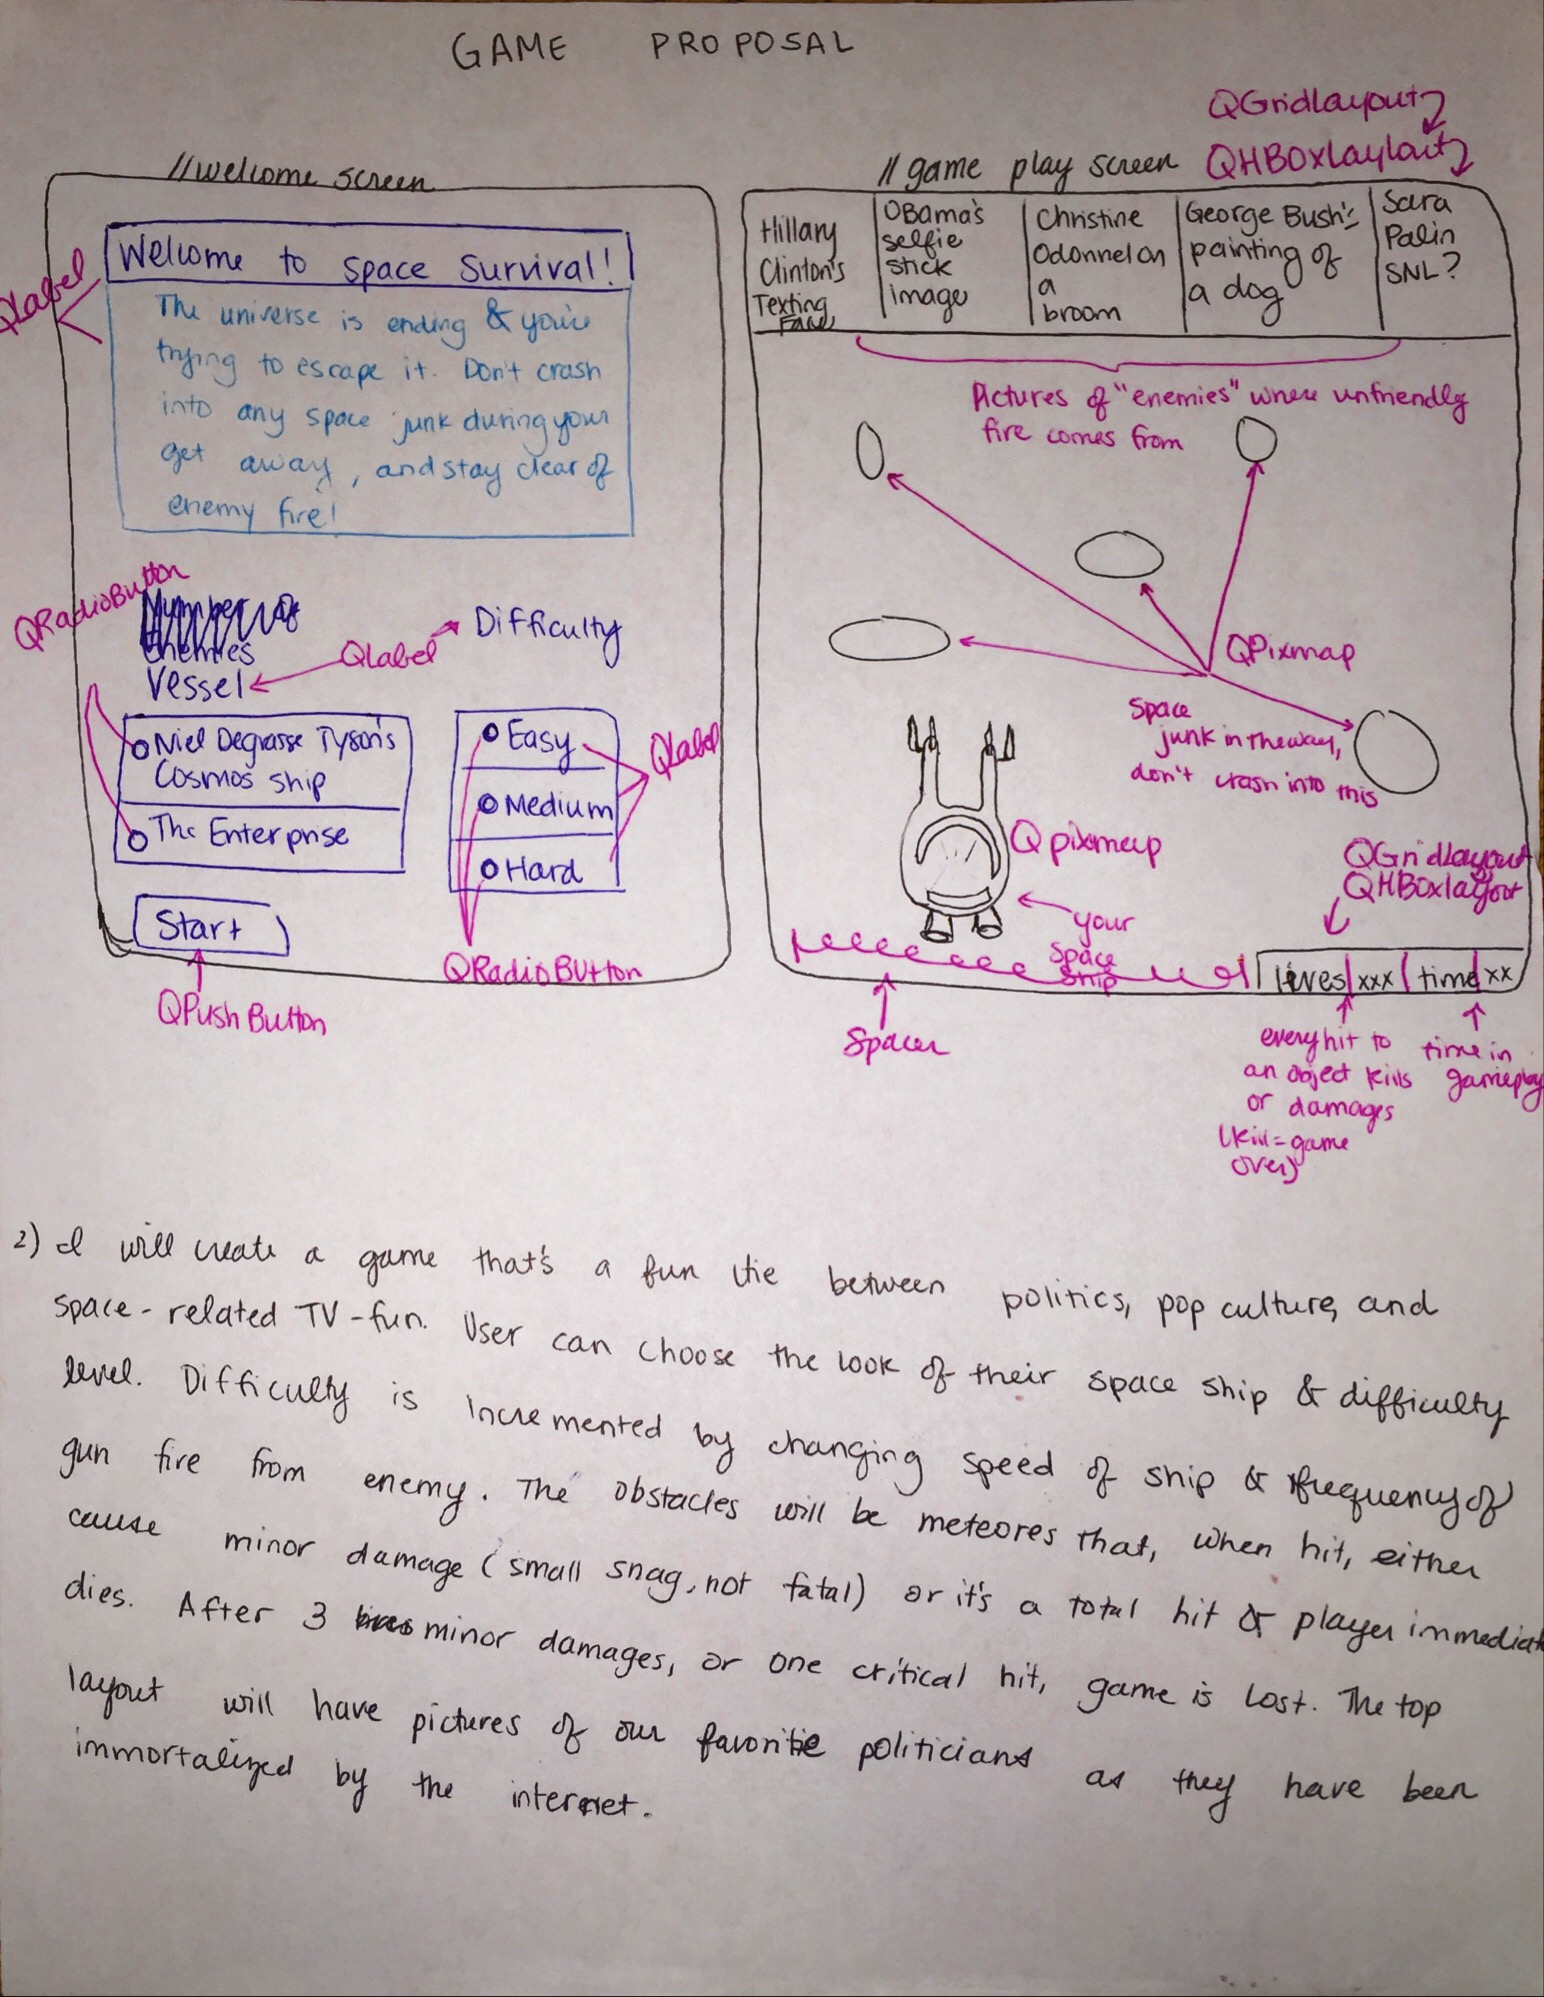 GAME PROPOSAL
//welcome screen
QLabel
Welcome to space Survival!
The universe is ending & you're
trying to escape it. Don't crash
into any space junk during your
get away, and stay clear of
enemy fire!
QRadioButton
Number of
Enemies
Vessel
QLabel
Difficulty
Niel Degrasse Tyson's
Cosmos ship
The Enterprise
Easy
Medium
Hard
QLabel
Start
QRadioBUtton
QPushButton
QGridlayout
//game play screen QHBOxLaylout
Hillary
Clinton's
Texting
Face
OBama's
selfie
stick
image
Christine
Odonnel on
a
broom
George Bush's
painting of
a dog
Sara
Palin
SNL?
Pictures of "enemies" where unfriendly
fire comes from
QPixmap
Space
junk in the way,
don't crash into this
Qpixmap
your
Space
Ship
QGridlayout
QHBoxlayout
lives xxx time xx
Spacer
every hit to
an object kills
or damages
(kill=game
over)
time in
gameplay
2) I will create a game that's a fun tie between politics, pop culture, and
space-related TV-fun. User can choose the look of their space ship & difficulty
level. Difficulty is incremented by changing speed of ship & frequency of
gun fire from enemy. The obstacles will be meteores that, when hit, either
cause minor damage (small snag, not fatal) or it's a total hit & player immediat
dies. After 3 minor damages, or one critical hit, game is lost. The top
layout will have pictures of our favorite politicians as they have been
immortalized by the internet.